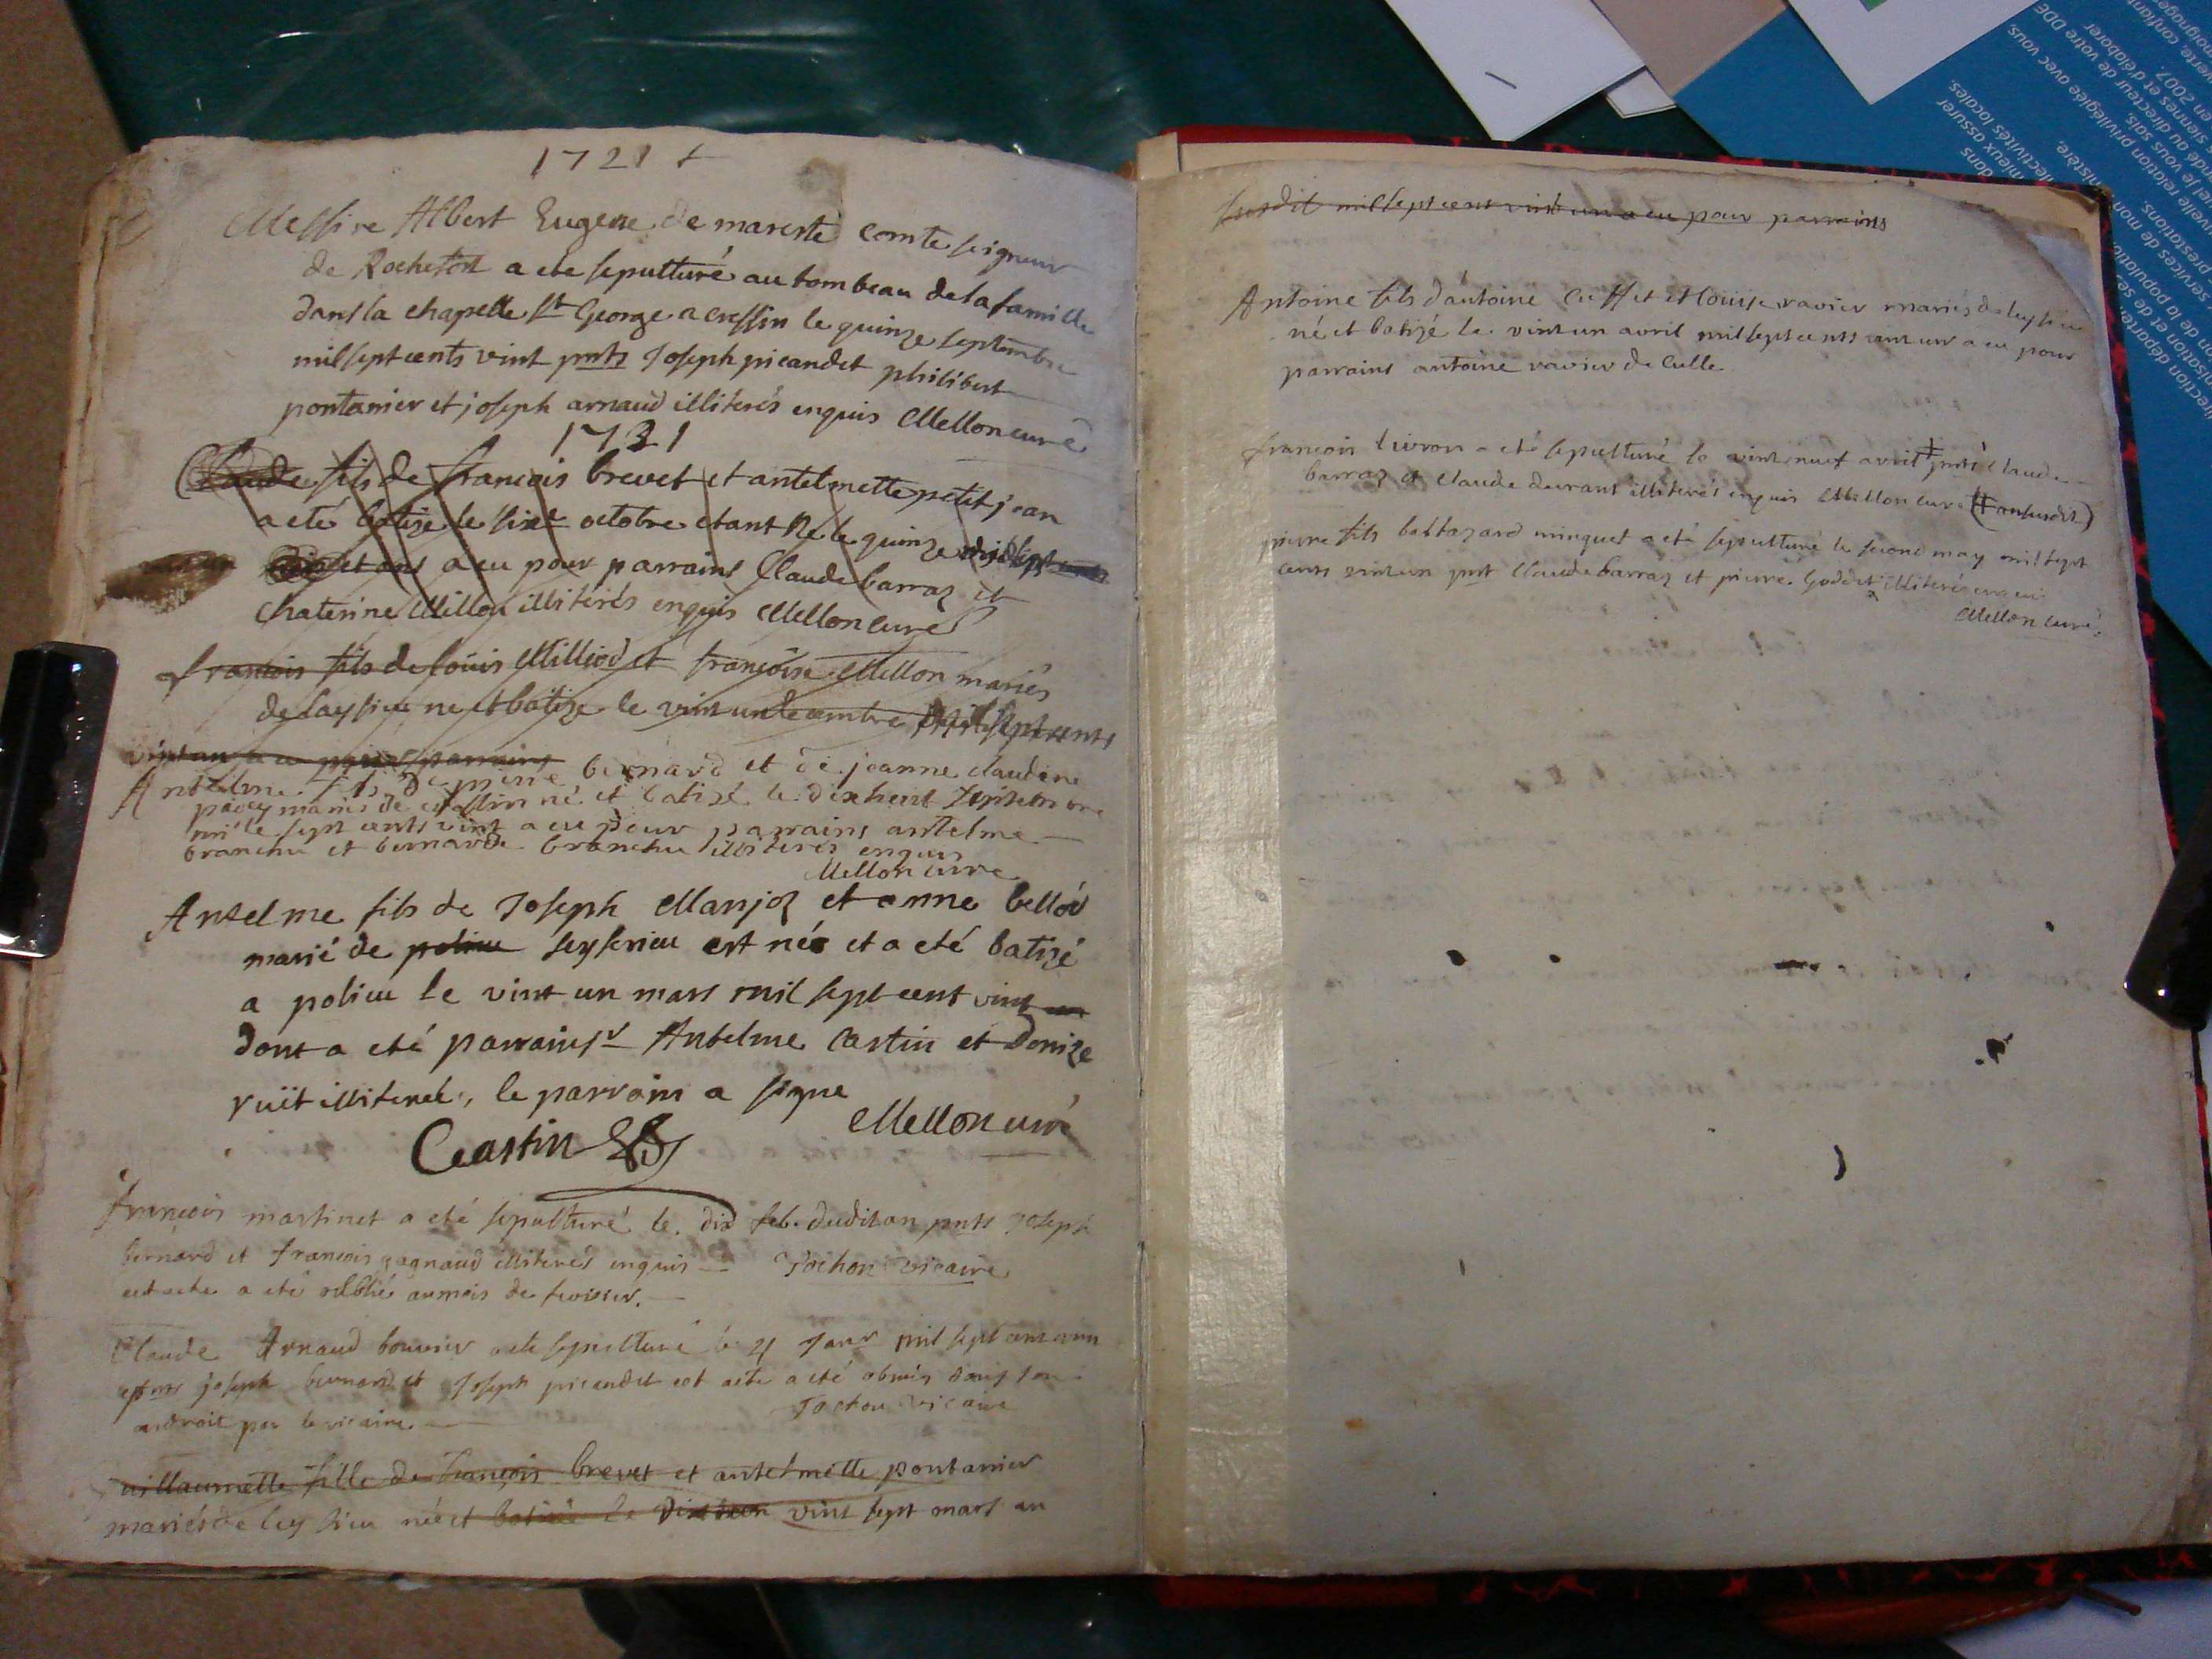 1721 +
Messire Albert Eugene de mareste comte seigneur
de Rochefort a ete sepulturé au tombeau de la famille
dans la chapelle St George a cressin le quinze septembre
mil sept cents vint pnts Joseph picandet philibert
pontanier et joseph arnaud illiterés enquis Mellon curé
1721
Claude fils de francois brevet et antelmette petit jean
a eté batize le octobre etant Ne le quinze
a eu pour parrains Claude barraz et
Chaterine Millou illiterés enquis Mellon curé
francois fils de louis Milliod et francoise Mellon mariés
de laysieu ne et batize le vint un decembre mil sept cents
vint un a eu pour parrains
Antelme fils de pierre bernard et de jeanne claudine
mariés de cressin né et batizé le dixheut septembre
mille sept cents vint a eu pour parrains antelme
branchu et bernarde branchu illiteres enquis
Mellon curé
Antelme fils de Joseph Manjoz et anne bellod
marié de polieu seyserieu est né et a eté batizé
a polieu le vint un mars mil sept cent vint un
dont a eté parrains Antelme Castin et Denize
ruit illiterés, le parrain a signe
Mellon curé
Castin
françois martinet a eté sepulturé le dix feb. dudit an pnts Joseph
bernard et francois gagnaud illiterés enquis Jochon vicaire
cet acte a eté oublié au mois de fevrier.
Claude Arnaud bouvier a ete sepulturé le 21 Janr mil sept cent vint
et joseph bernard et Joseph picandet cet acte a eté obmis dans son
androit par le vicaire Jochon vicaire
fille de françois brevet et antelmette pontanier
mariés de leysieu née et batisée le vint sept mars an
susdit mil sept cent vint un a eu pour parrains
Antoine fils d'antoine et Louise ravier mariés de leysieu
né et batizé le vint un avril mil sept cents vint un a eu pour
parrains antoine ravier de Culle
francois livron a eté sepulturé le vint neuf avril ‡ pnts Claude
barraz et Claude durant illiterés enquis Mellon curé (‡ an susdit)
pierre fils baltazard minguet a eté sepulturé le second may mil sept
cents vint un pnt Claude barraz et pierre Goddet illiterés enquis
Mellon curé.
prestation
services de mon
de la population
relation privilégiée avec vous
directeur
de votre DDE
2007.
mieux assurer
collectivités locales.